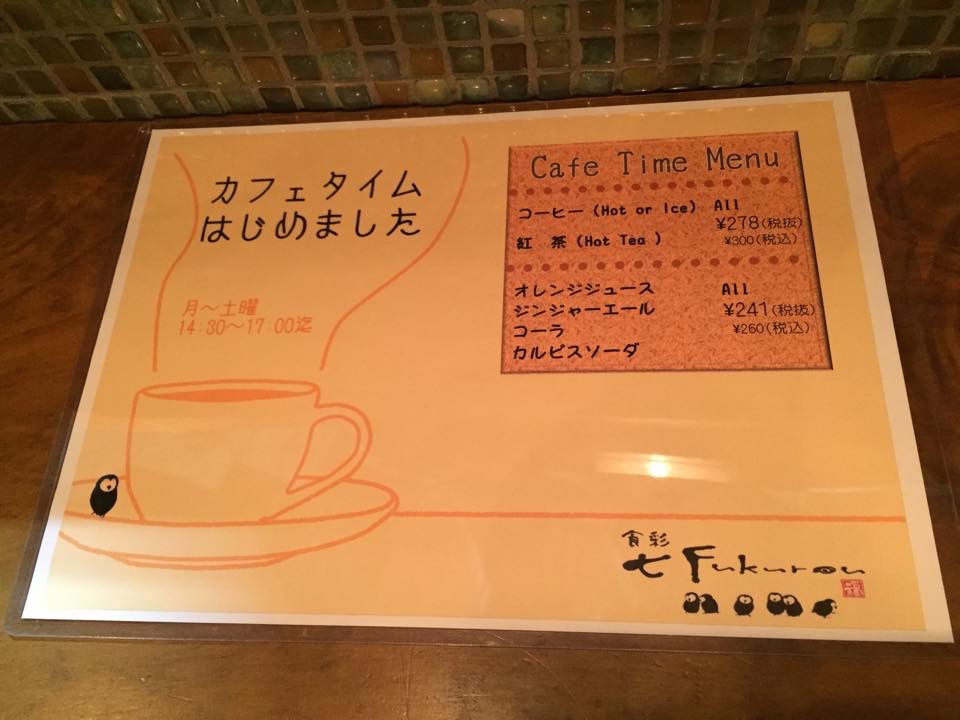 カフェタイム
はじめました
月～土曜
14:30～17:00迄
Cafe Time Menu
コーヒー (Hot or Ice) All
¥278(税抜)
紅 茶 (Hot Tea ) ¥300(税込)
オレンジジュース All
ジンジャーエール ¥241(税抜)
コーラ ¥260(税込)
カルピスソーダ
食彩
七 Fukurou